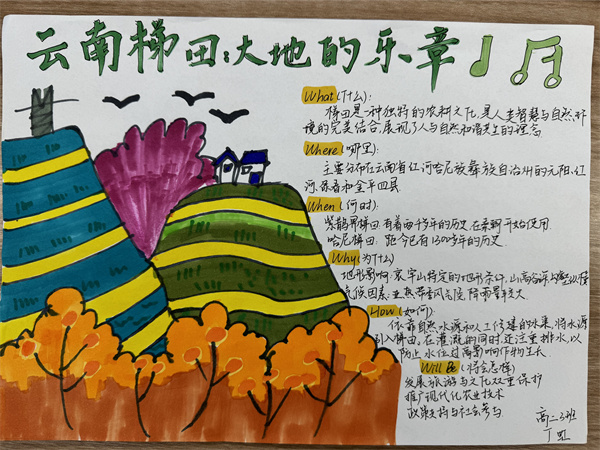 云南梯田:大地的乐章
What(什么):
梯田是一种独特的农耕文化,是人类智慧与自然环
境的完美结合,展现了人与自然和谐共生的理念
Where(哪里):
主要分布在云南省红河哈尼族彝族自治州的元阳、红
河、绿春和金平四县
When(何时):
紫鹊界梯田有着两千多年的历史,在秦朝开始使用
哈尼梯田,距今已有1300多年的历史
Why(为什么)
地形影响:哀牢山特定的地形条件,山高谷深
气候因素:亚热带季风气候,降雨量较大
How(如何)
依靠自然水源和人工修建的水渠,将水源
引入梯田,在灌溉的同时,还注重排水,以
防止水位过高影响作物生长
Will be(将会怎样)
发展旅游与文化双重保护
推广现代化农业技术
政策支持与社会参与
高二3班
丁